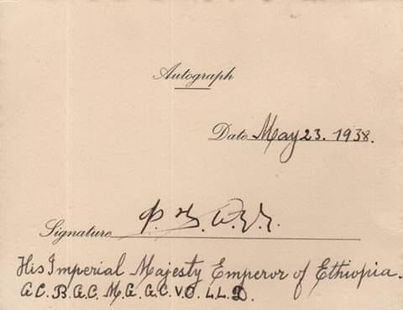 Autograph
Date May 23. 1938.
Signature
His Imperial Majesty Emperor of Ethiopia.
G.C.B. G.C.M.G. G.C.V.O. LL.D.